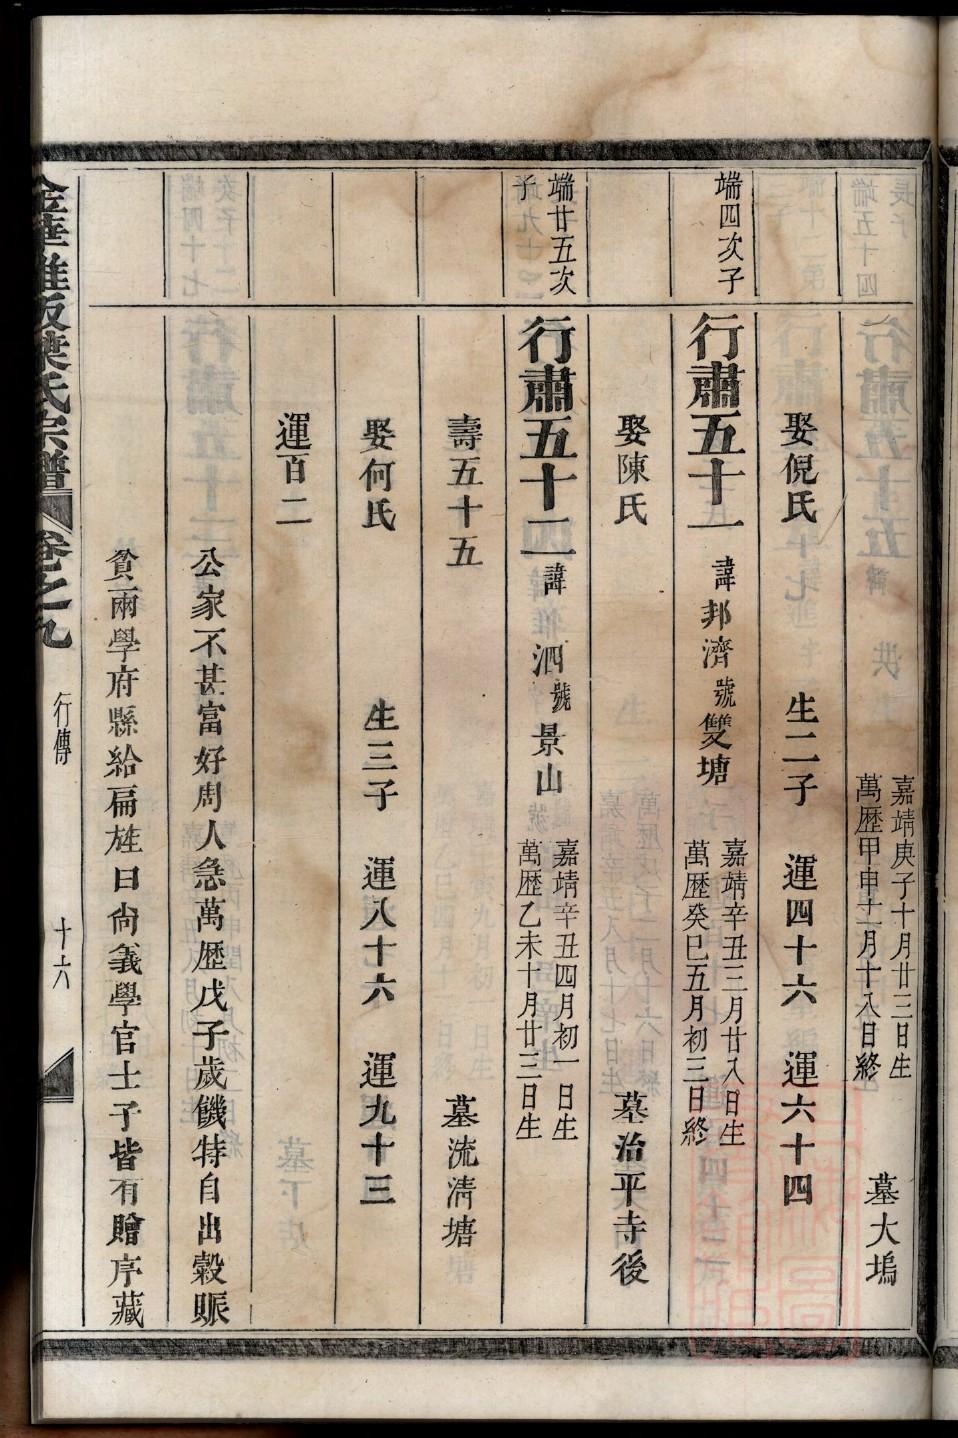 嘉靖庚子十月廿三日生
萬歷甲申十一月十八日終
墓大塢
娶倪氏　生二子　運四十六　運六十四
端四次子
行肅五十一　諱邦濟　號雙塘
嘉靖辛丑三月廿八日生
萬歷癸巳五月初三日終
娶陳氏　墓治平寺後
端廿五次子
行肅五十二　諱泗　號景山
嘉靖辛丑四月初一日生
萬歷乙未十月廿三日生
壽五十五　墓流清塘
娶何氏　生三子　運八十六　運九十三
運百二
公家不甚富好周人急萬歷戊子歲饑特自出穀賑
貧兩學府縣給扁旌曰尚義學官士子皆有贈序藏
葉氏宗譜　卷之九　行傳　十六